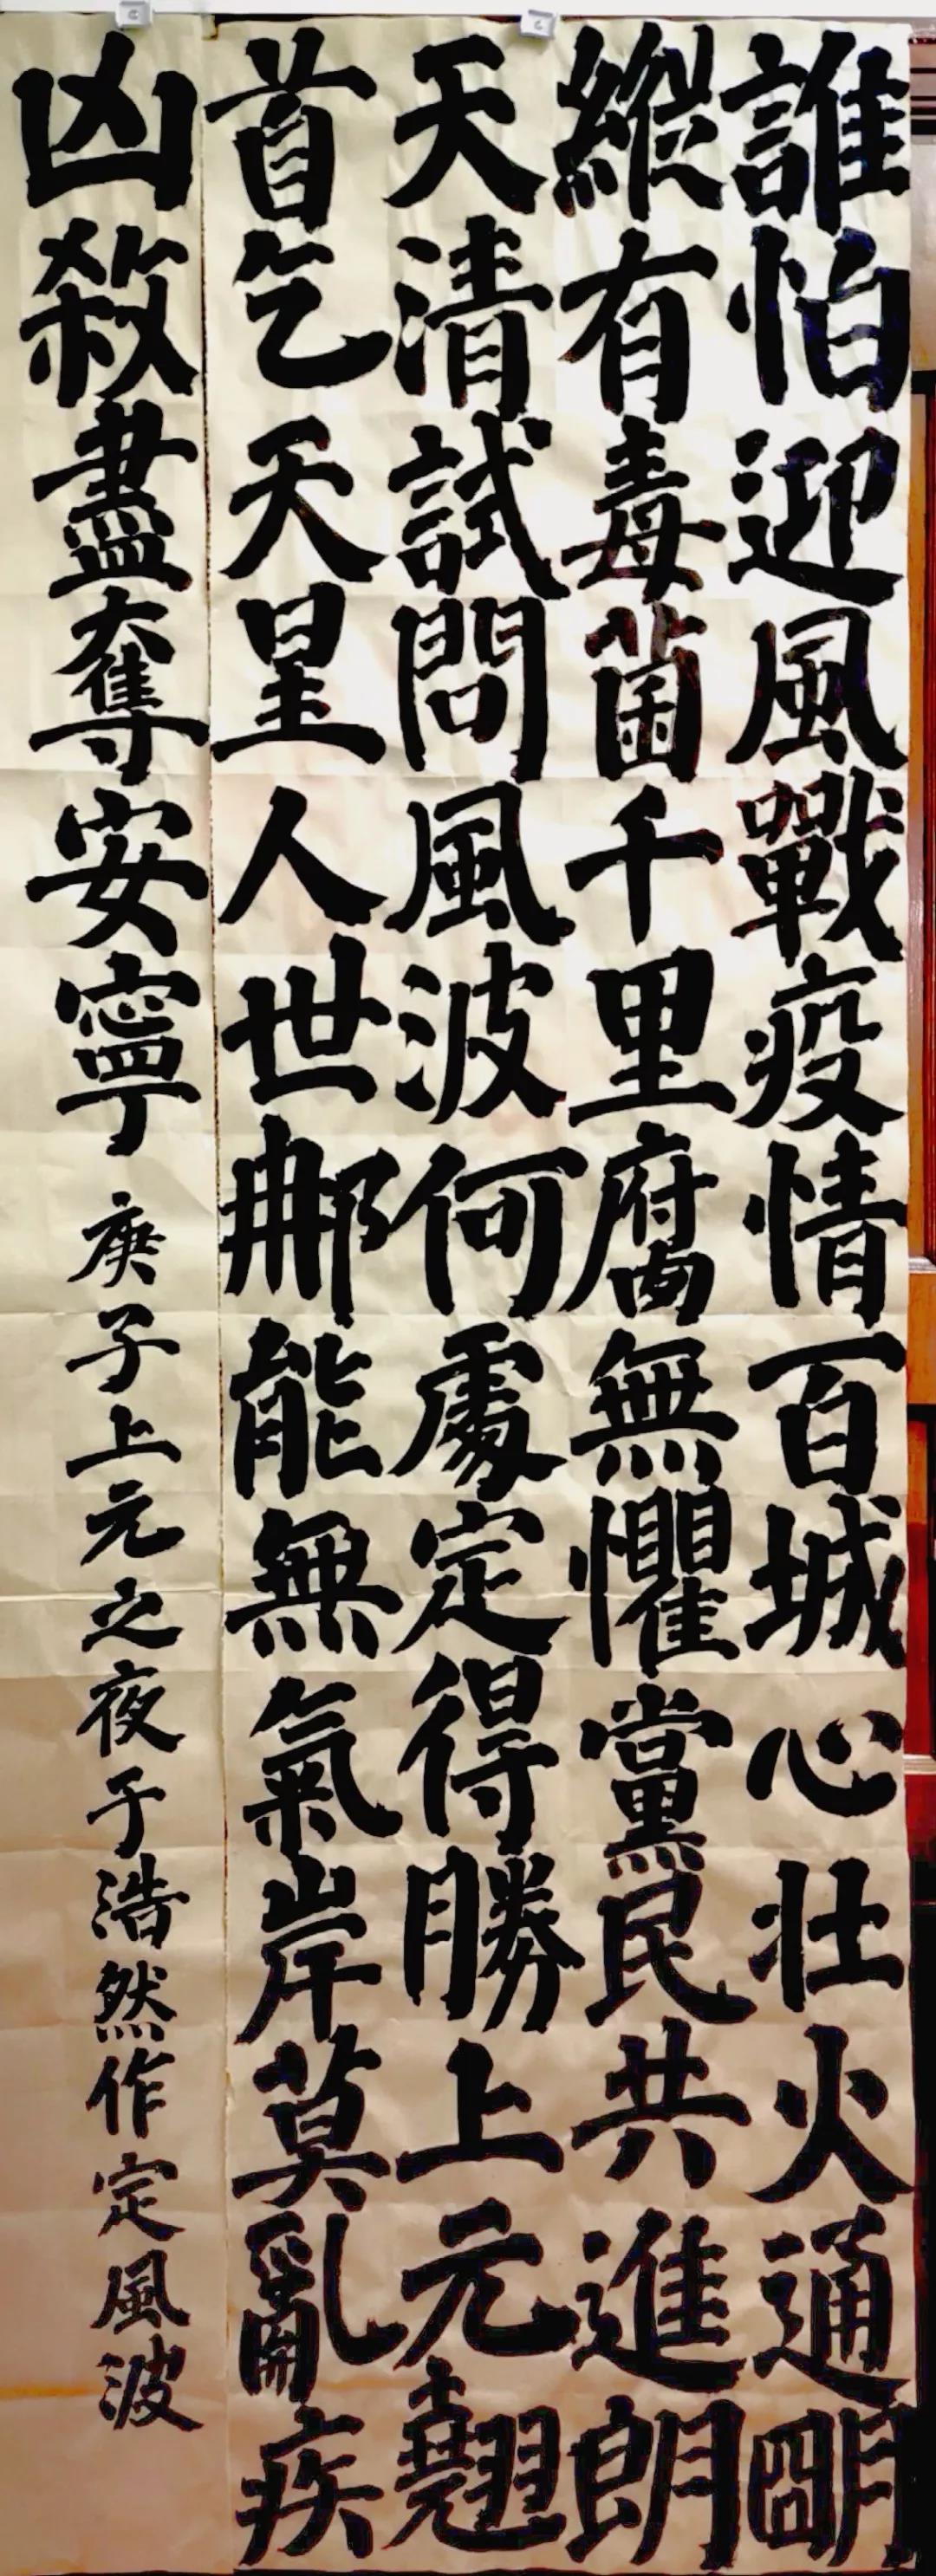 誰怕迎風戰疫情百城心壯火通明
縱有毒菌千里腐無懼黨民共進朗
天清試問風波何處定得勝上元翹
首乞天星人世那能無氣岸莫亂疾
凶殺盡奪安寧
庚子上元之夜于浩然作定風波